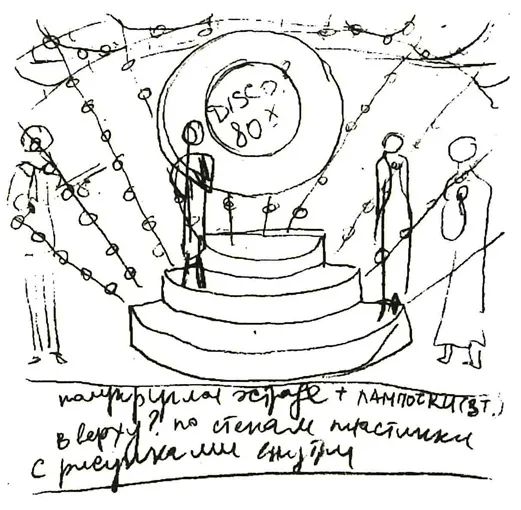 DISCO
80х
полукруглая эстрада + ЛАМПОЧКИ (эт.)
вверху? по стенам пластинки
с рисунками внутри